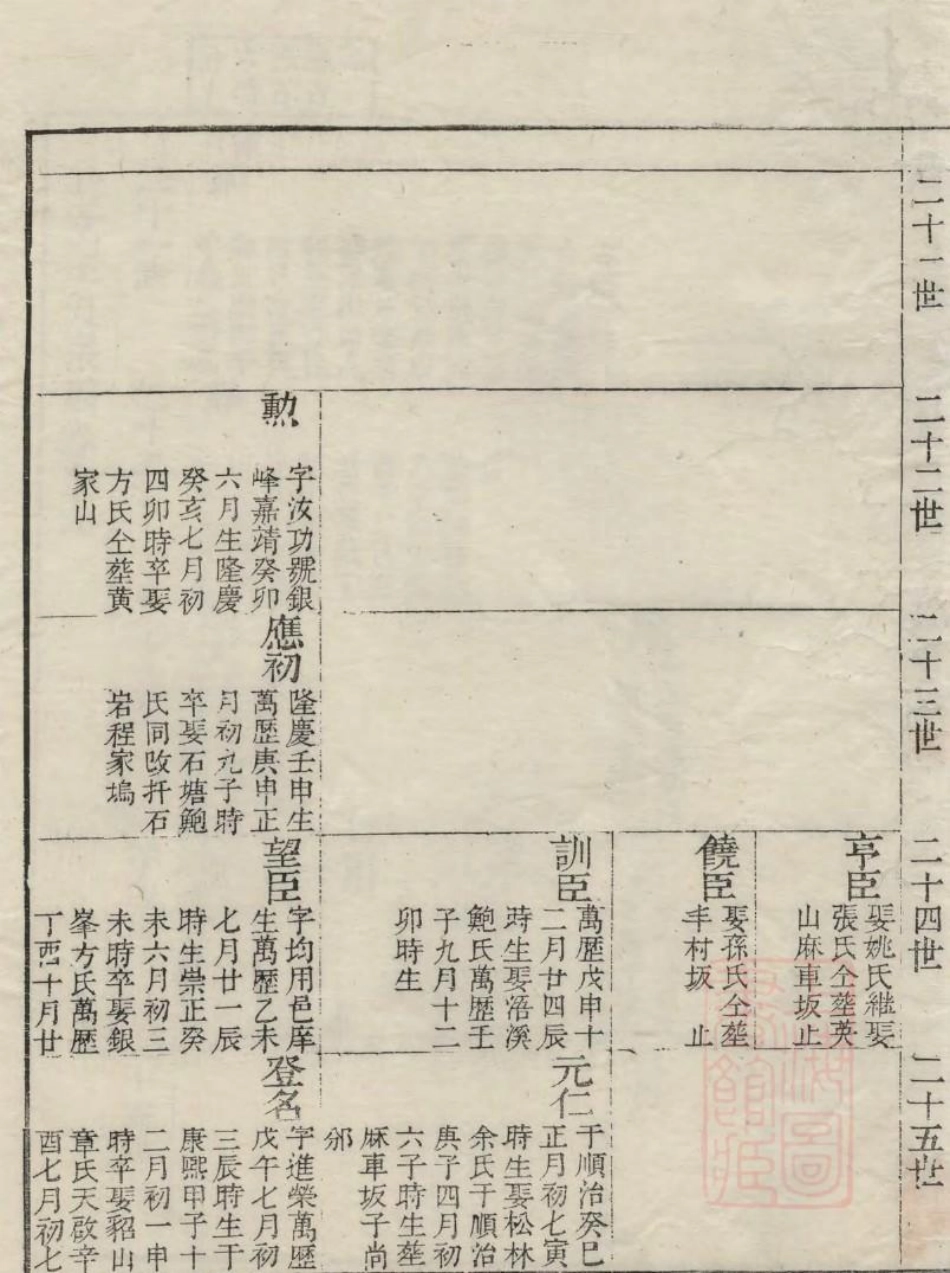 二十一世
二十二世
二十三世
二十四世
二十五世
勲
字汝功號銀
峰嘉靖癸卯
六月生隆慶
癸亥七月初
四卯時卒娶
方氏仝塟黄
家山
應初
隆慶壬申生
萬歷庚申正
月初九子時
卒娶石塘鮑
氏同改扦石
岩程家塢
亨臣
娶姚氏継娶
張氏仝塟英
山麻車坂止
饒臣
娶孫氏仝塟
丰村坂 止
訓臣
萬歷戊申十
二月廿四辰
時生娶浯溪
鮑氏萬歷壬
子九月十二
卯時生
望臣
字均用邑庠
生萬歷乙未
七月廿一辰
時生崇正癸
未六月初三
未時卒娶銀
峯方氏萬歷
丁酉十月廿
元仁
于順治癸巳
正月初七寅
時生娶松林
余氏于順治
庚子四月初
六子時生塟
麻車坂子尚
邠
登名
字進榮萬歷
戊午七月初
三辰時生于
康熙甲子十
二月初一申
時卒娶貂山
章氏天啟辛
酉七月初七